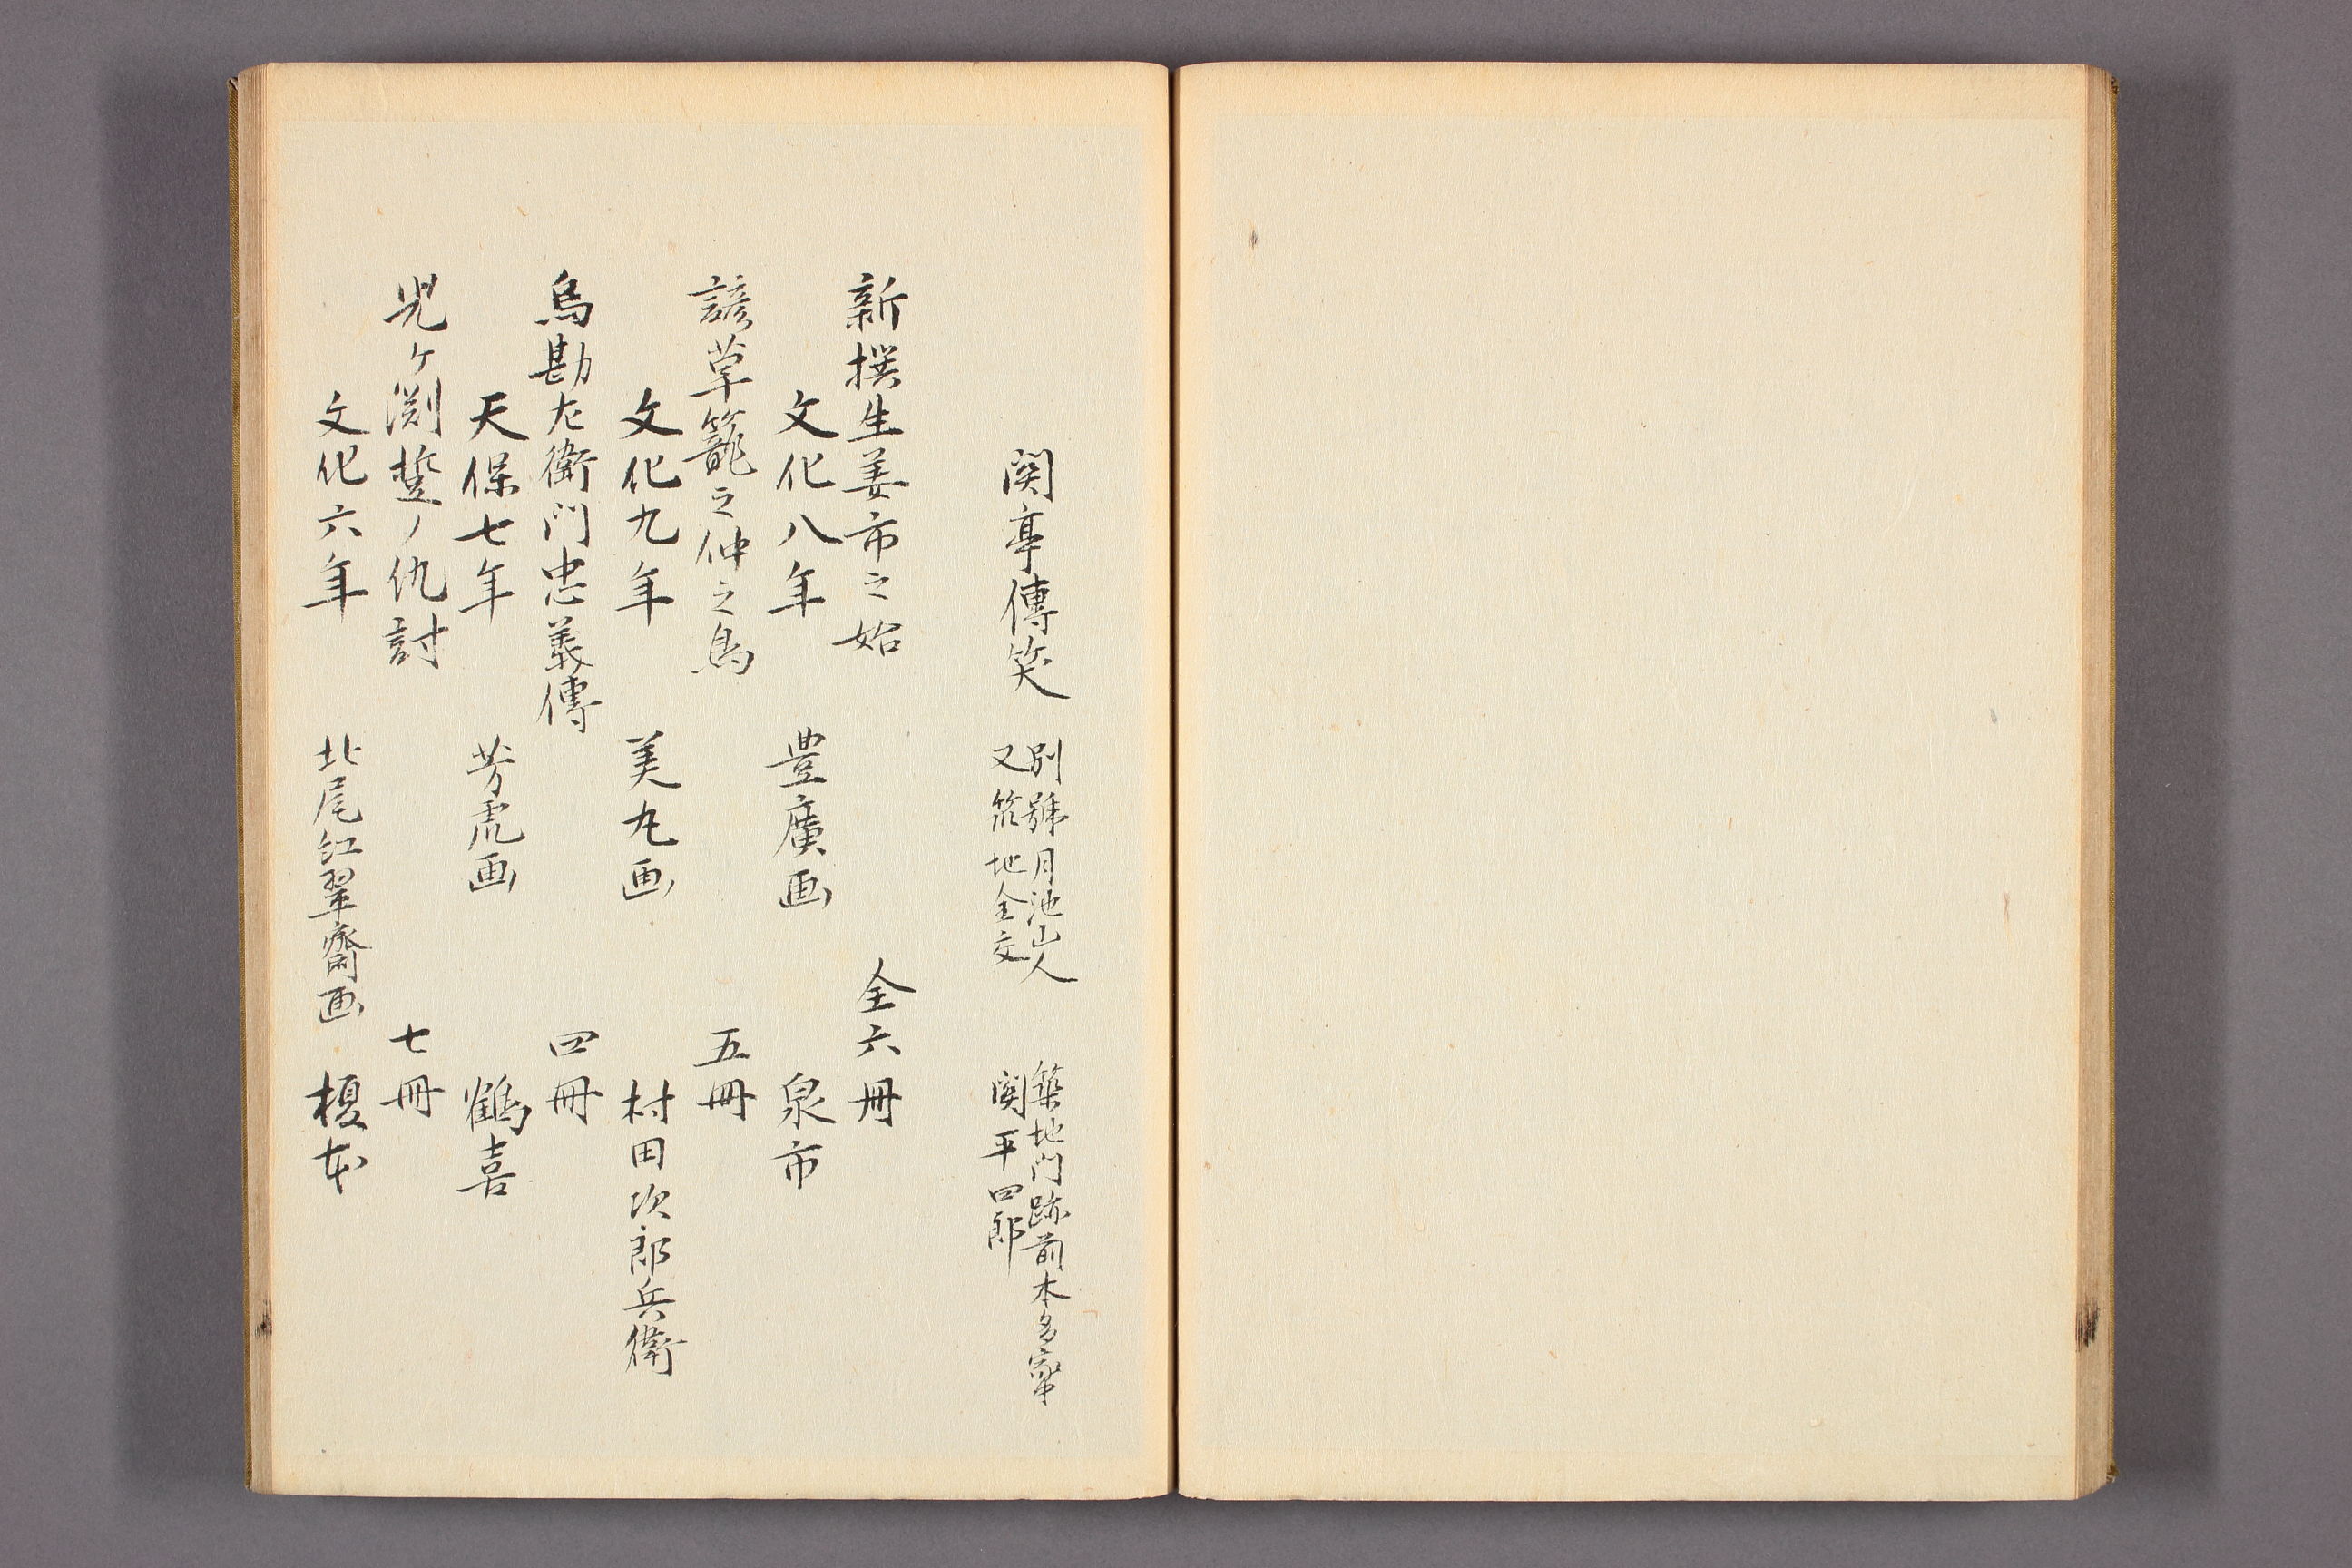 関亭傳笑
別號月池山人
又筑地全交
築地門跡前本多家中
関平四郎
新撰生姜市之始　全六冊
文化八年　豊廣画　泉市
諺草籠之仲之鳥　五冊
文化九年　美丸画　村田次郎兵衛
烏勘左衛門忠義傳　四冊
天保七年　芳虎画　鶴喜
児ケ渕誓ノ仇討　七冊
文化六年　北尾紅翠齋画　榎本